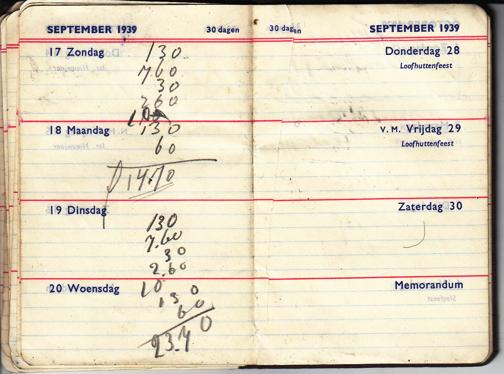 SEPTEMBER 1939 30 dagen
17 Zondag 130
760
30
260
18 Maandag 130
60
14.70
19 Dinsdag
130
7.60
30
2.60
20 Woensdag 10 0
130
60
30 dagen SEPTEMBER 1939
Donderdag 28
Loofhuttenfeest
V.M. Vrijdag 29
Loofhuttenfeest
Zaterdag 30
Memorandum